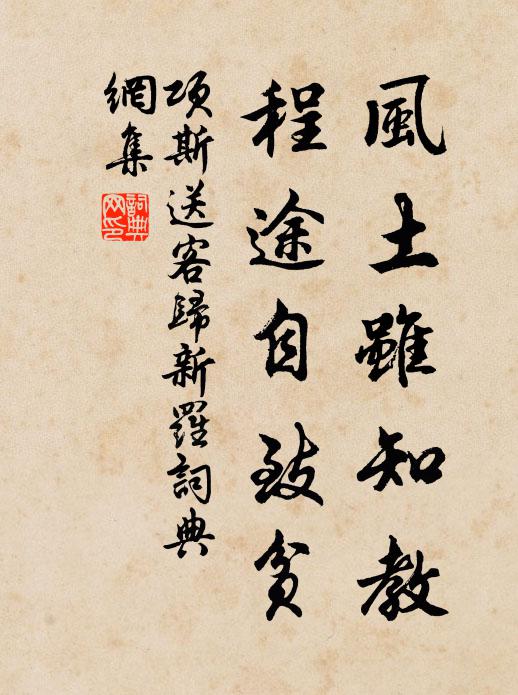 風土雖知教
程途自致貧
項斯送客歸新羅詞典
網集
詞典
网印